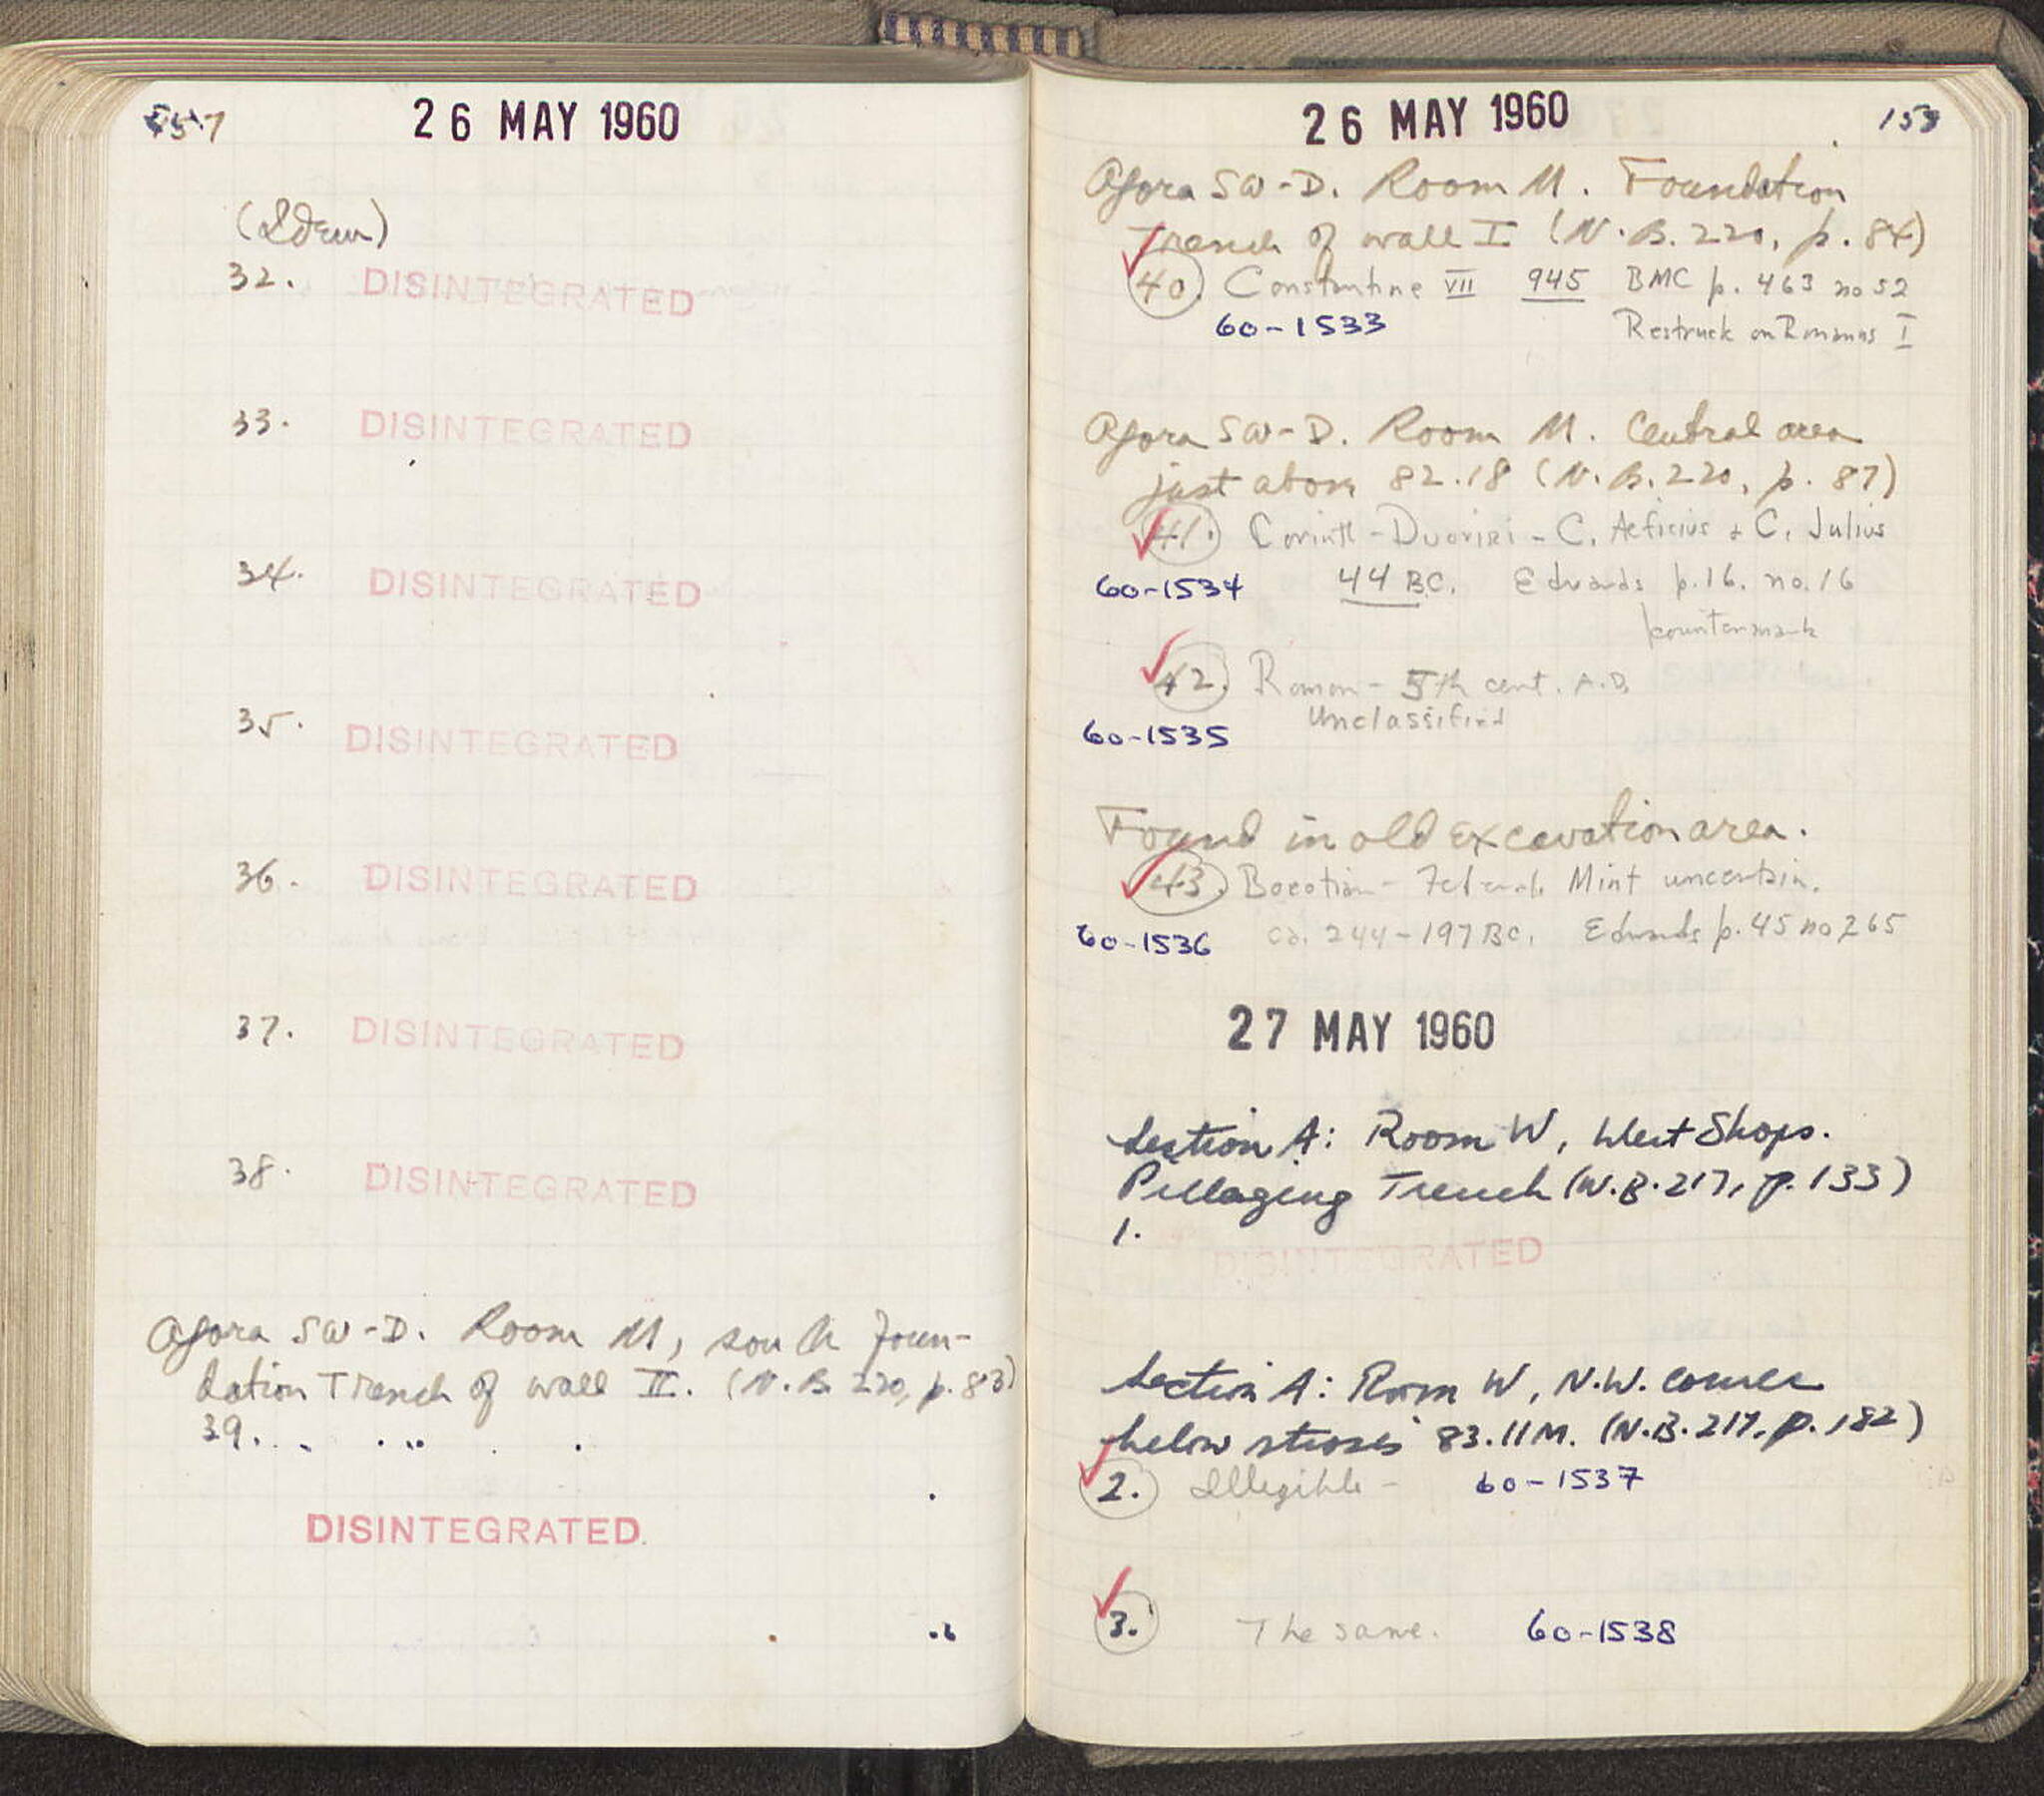 157
26 MAY 1960
(Idem)
32. DISINTEGRATED
33. DISINTEGRATED
34. DISINTEGRATED
35. DISINTEGRATED
36. DISINTEGRATED
37. DISINTEGRATED
38. DISINTEGRATED
Agora SW-D. Room M, south Foun-
dation Trench of wall II. (N.B. 220, p. 83)
39.
DISINTEGRATED
26 MAY 1960
158
Agora SW-D. Room M. Foundation
Trench of wall I (N.B. 220, p. 84)
40. Constantine VII 945 BMC p. 463 no 52
60-1533 Restruck on Romanus I
Agora SW-D. Room M. Central area
just above 82.18 (N.B. 220, p. 87)
41. Corinth - Duoviri - C. Aeficius + C. Julius
60-1534 44 BC. Edwards p.16. no.16
countermark
42. Roman - 5th cent. A.D.
Unclassified
60-1535
Found in old excavation area.
43. Boeotian - Federal. Mint uncertain.
60-1536 ca. 244-197 BC. Edwards p. 45 no 265
27 MAY 1960
Section A: Room W, West Shops.
Pillaging Trench (N.B. 217, p. 133)
1.
DISINTEGRATED
Section A: Room W, N.W. corner
below stereo 83.11M. (N.B. 217, p. 182)
2. Illegible - 60-1537
3. The same. 60-1538